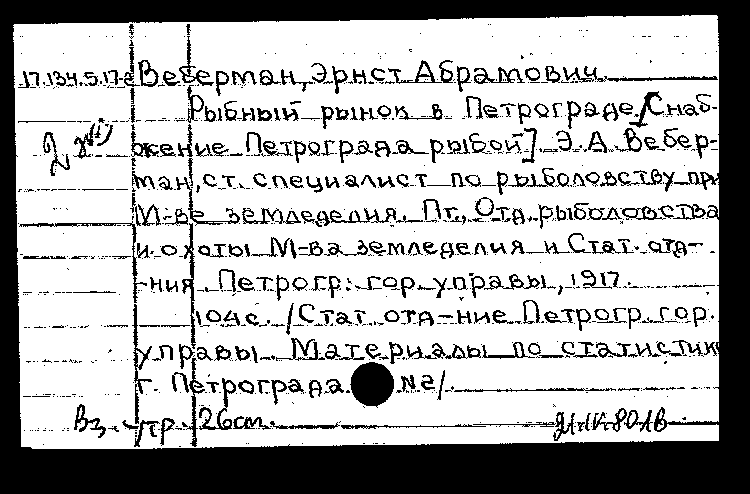 17.134.5.17-2 Веберман, Эрнст Абрамович.
Рыбный рынок в Петрограде [Снаб-
жение Петрограда рыбой]. Э. А. Вебер-
ман, ст. специалист по рыболовству при
М-ве земледелия. Пг., Отд. рыболовства
и охоты М-ва земледелия и Стат. отд-
-ния. Петрогр. гор. управы, 1917.
104с. /Стат. отд-ние Петрогр. гор.
управы. Материалы по статистик
г. Петрограда. №2/.
Вз. 26см.